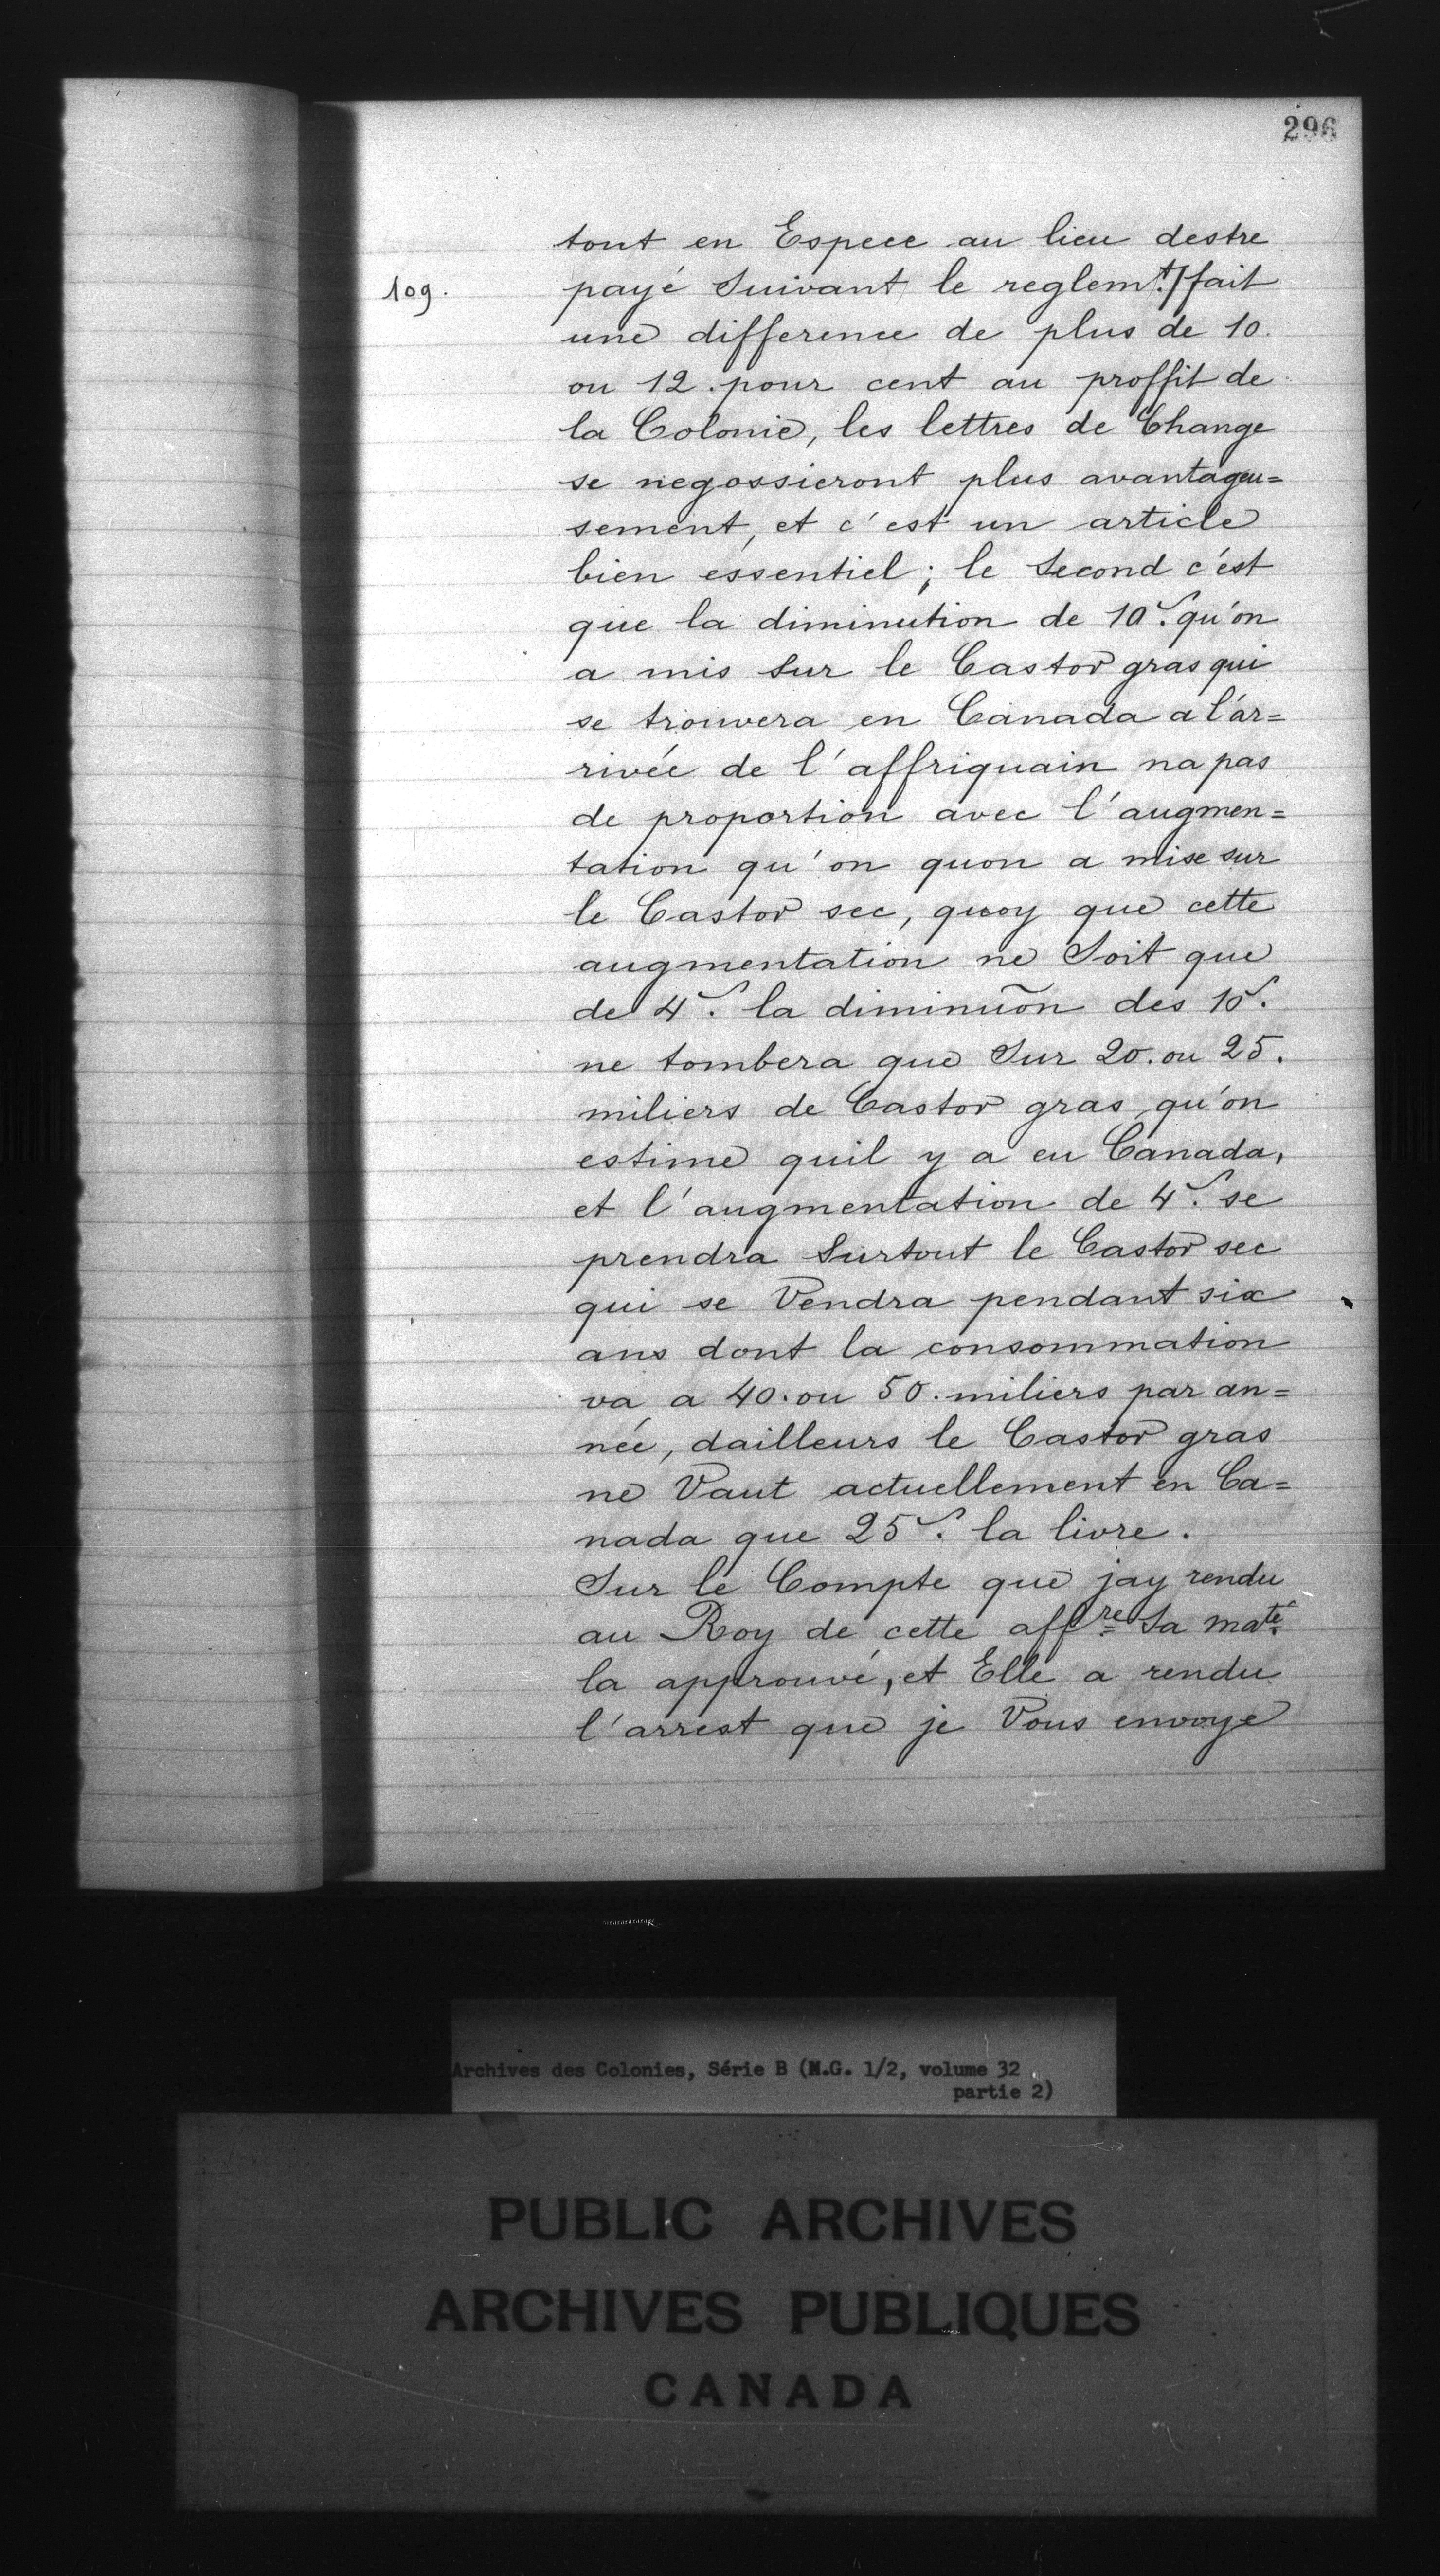 296
tout en Espece au lieu destre
109.
payé Suivant le reglem.t/fait
une difference de plus de 10.
ou 12. pour cent au proffit de
la Colonie, les lettres de Change
se negossieront plus avantageu=
sement, et c'est un article
bien essentiel; le Second c'est
que la diminution de 10.s qu'on
a mis Sur le Castor gras qui
se trouvera en Canada a l'ar=
rivée de l'affriquain na pas
de proportion avec l'augmen=
tation qu'on quon a mise sur
le Castor sec, quoy que cette
augmentation ne Soit que
de 4.s la diminuõn des 10.s
ne tombera que Sur 20. ou 25.
miliers de Castor gras qu'on
estime quil y a en Canada,
et l'augmentation de 4.s se
prendra Surtout le Castor sec
qui se Vendra pendant six
ans dont la consommation
va a 40. ou 50. miliers par an=
née, dailleurs le Castor gras
ne Vaut actuellement en Ca=
nada que 25.s la livre.
Sur le Compte que jay rendu
au Roy de cette aff.re Sa ma.té
la approuvé, et Elle a rendu
l'arrest que je Vous envoye
Archives des Colonies, Série B (M.G. 1/2, volume 32
partie 2)
PUBLIC ARCHIVES
ARCHIVES PUBLIQUES
CANADA